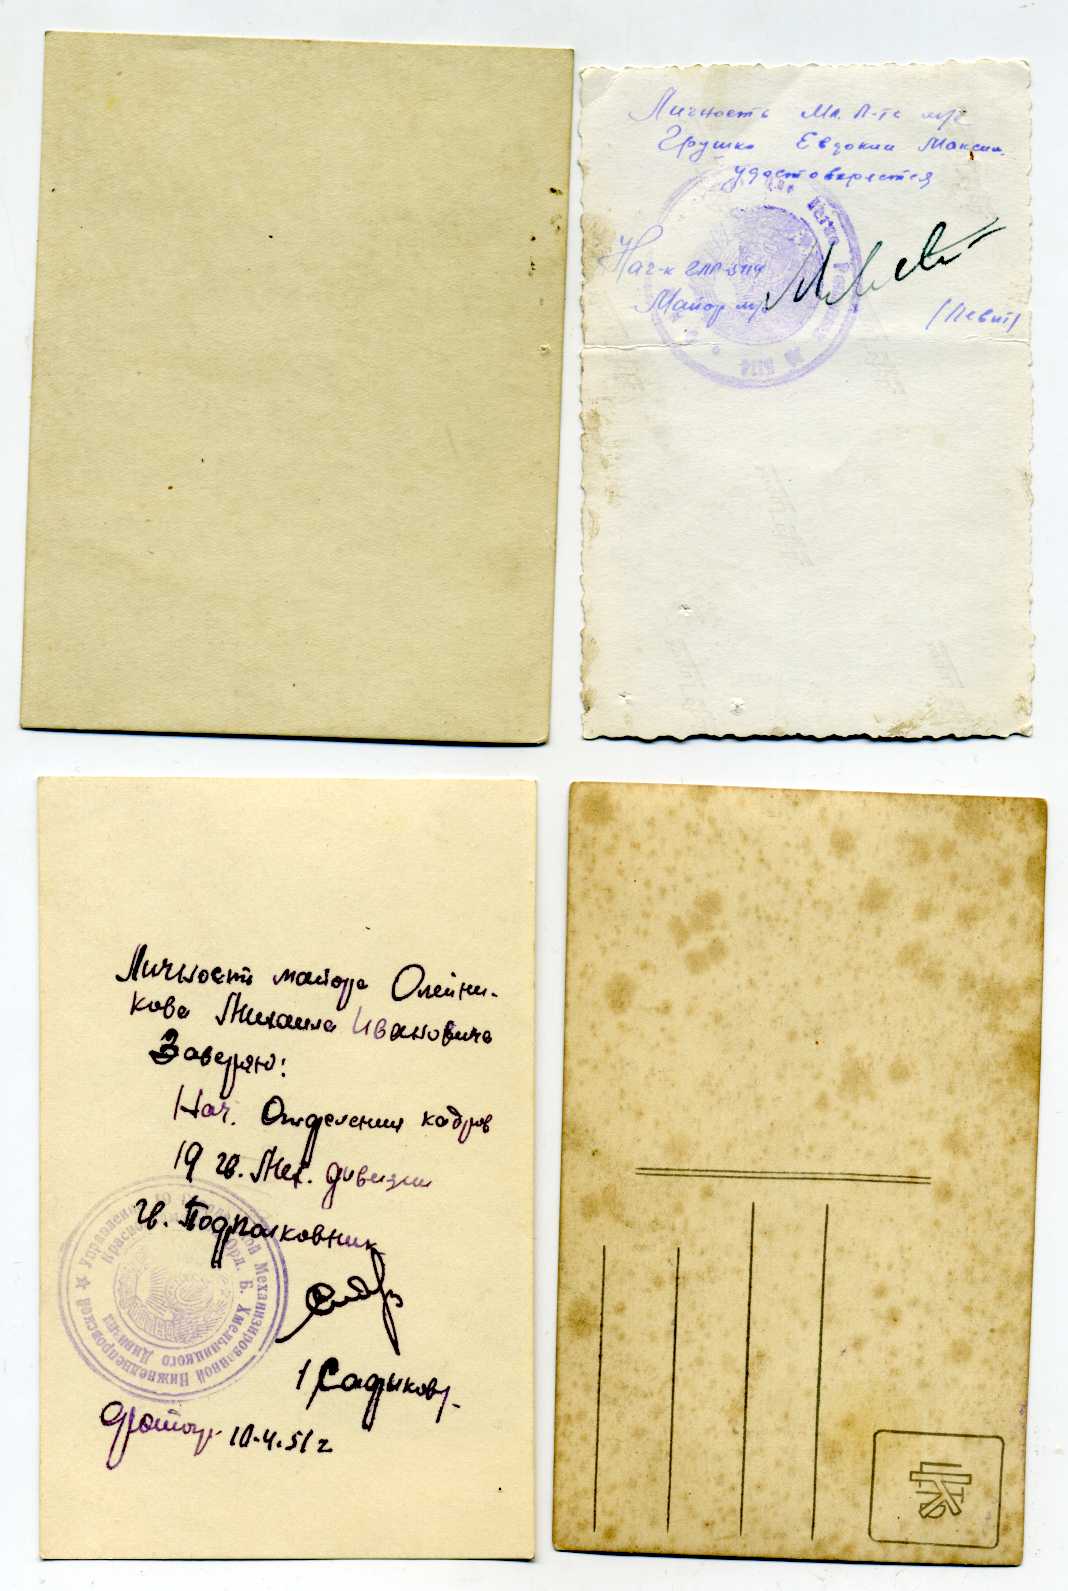 Личность Мл. л-та м/с
Грушко Евдокии Максим.
удостоверяется
Нач-к ГЛР-5114
Майор м/с
(Левит)
№ 5114
Личность майора Олейни-
кова Михаила Ивановича
Заверяю:
Нач. Отделения кадров
19 гв. Мех. дивизии
гв. Подполковник
(Садыков).
10.4.51 г
Механизированной Нижнеднепровской ★ Управление
Красн Орд. Б. Хмельницкого Дивизии